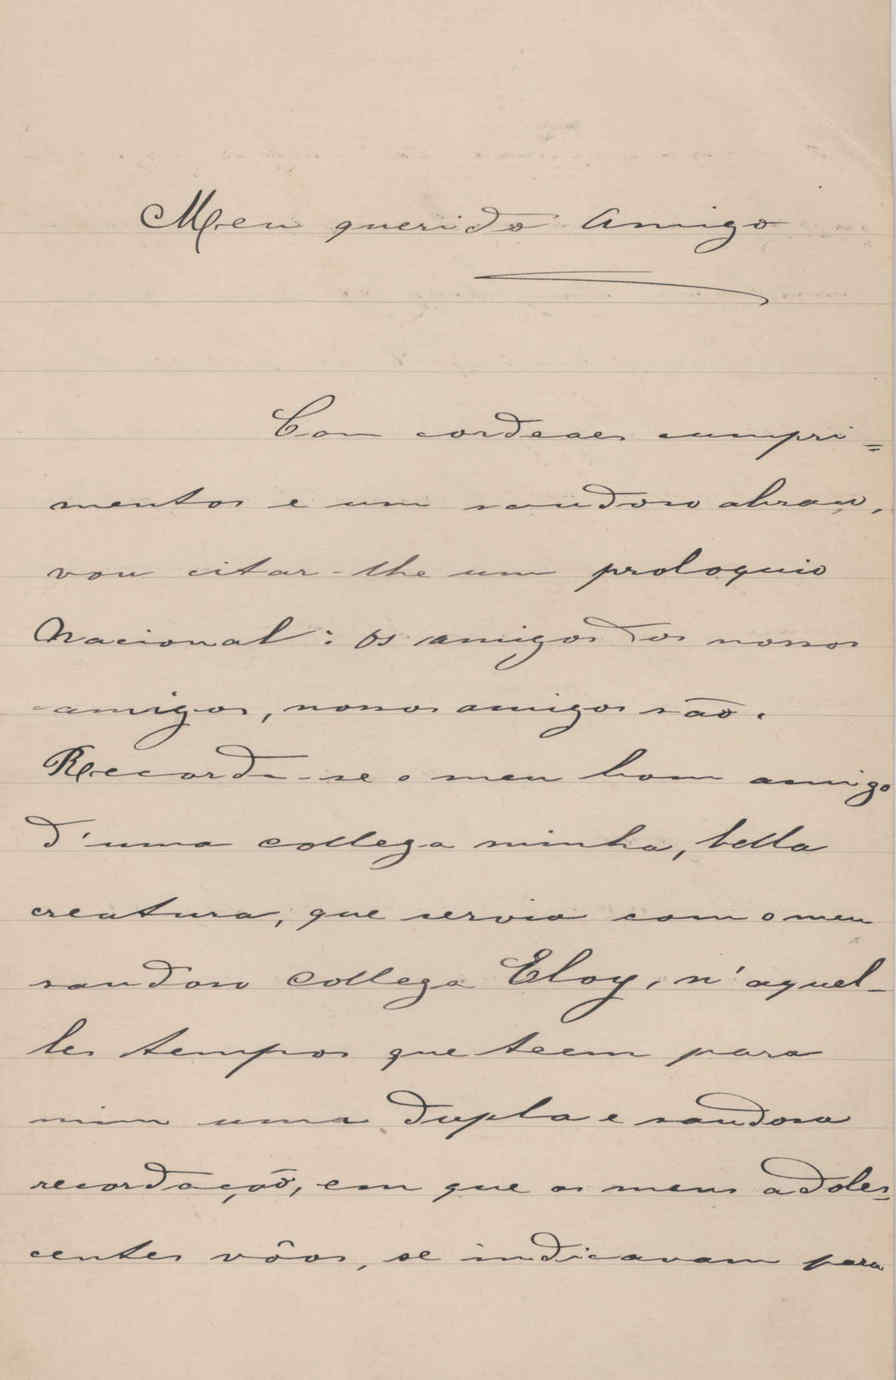 Meu querido Amigo
Com cordeaes cumpri=
mentos e um saudoso abraço,
vou citar-lhe um proloquio
Nacional: os amigos dos nossos
amigos, nossos amigos são.
Recorda-se o meu bom amigo
d'uma collega minha, bella
creatura, que servia com o meu
saudoso collega Eloy, n'aquel-
les tempos que teem para
mim uma dupla e saudosa
recordação, em que os meus adoles=
centes vôos, se indicavam para